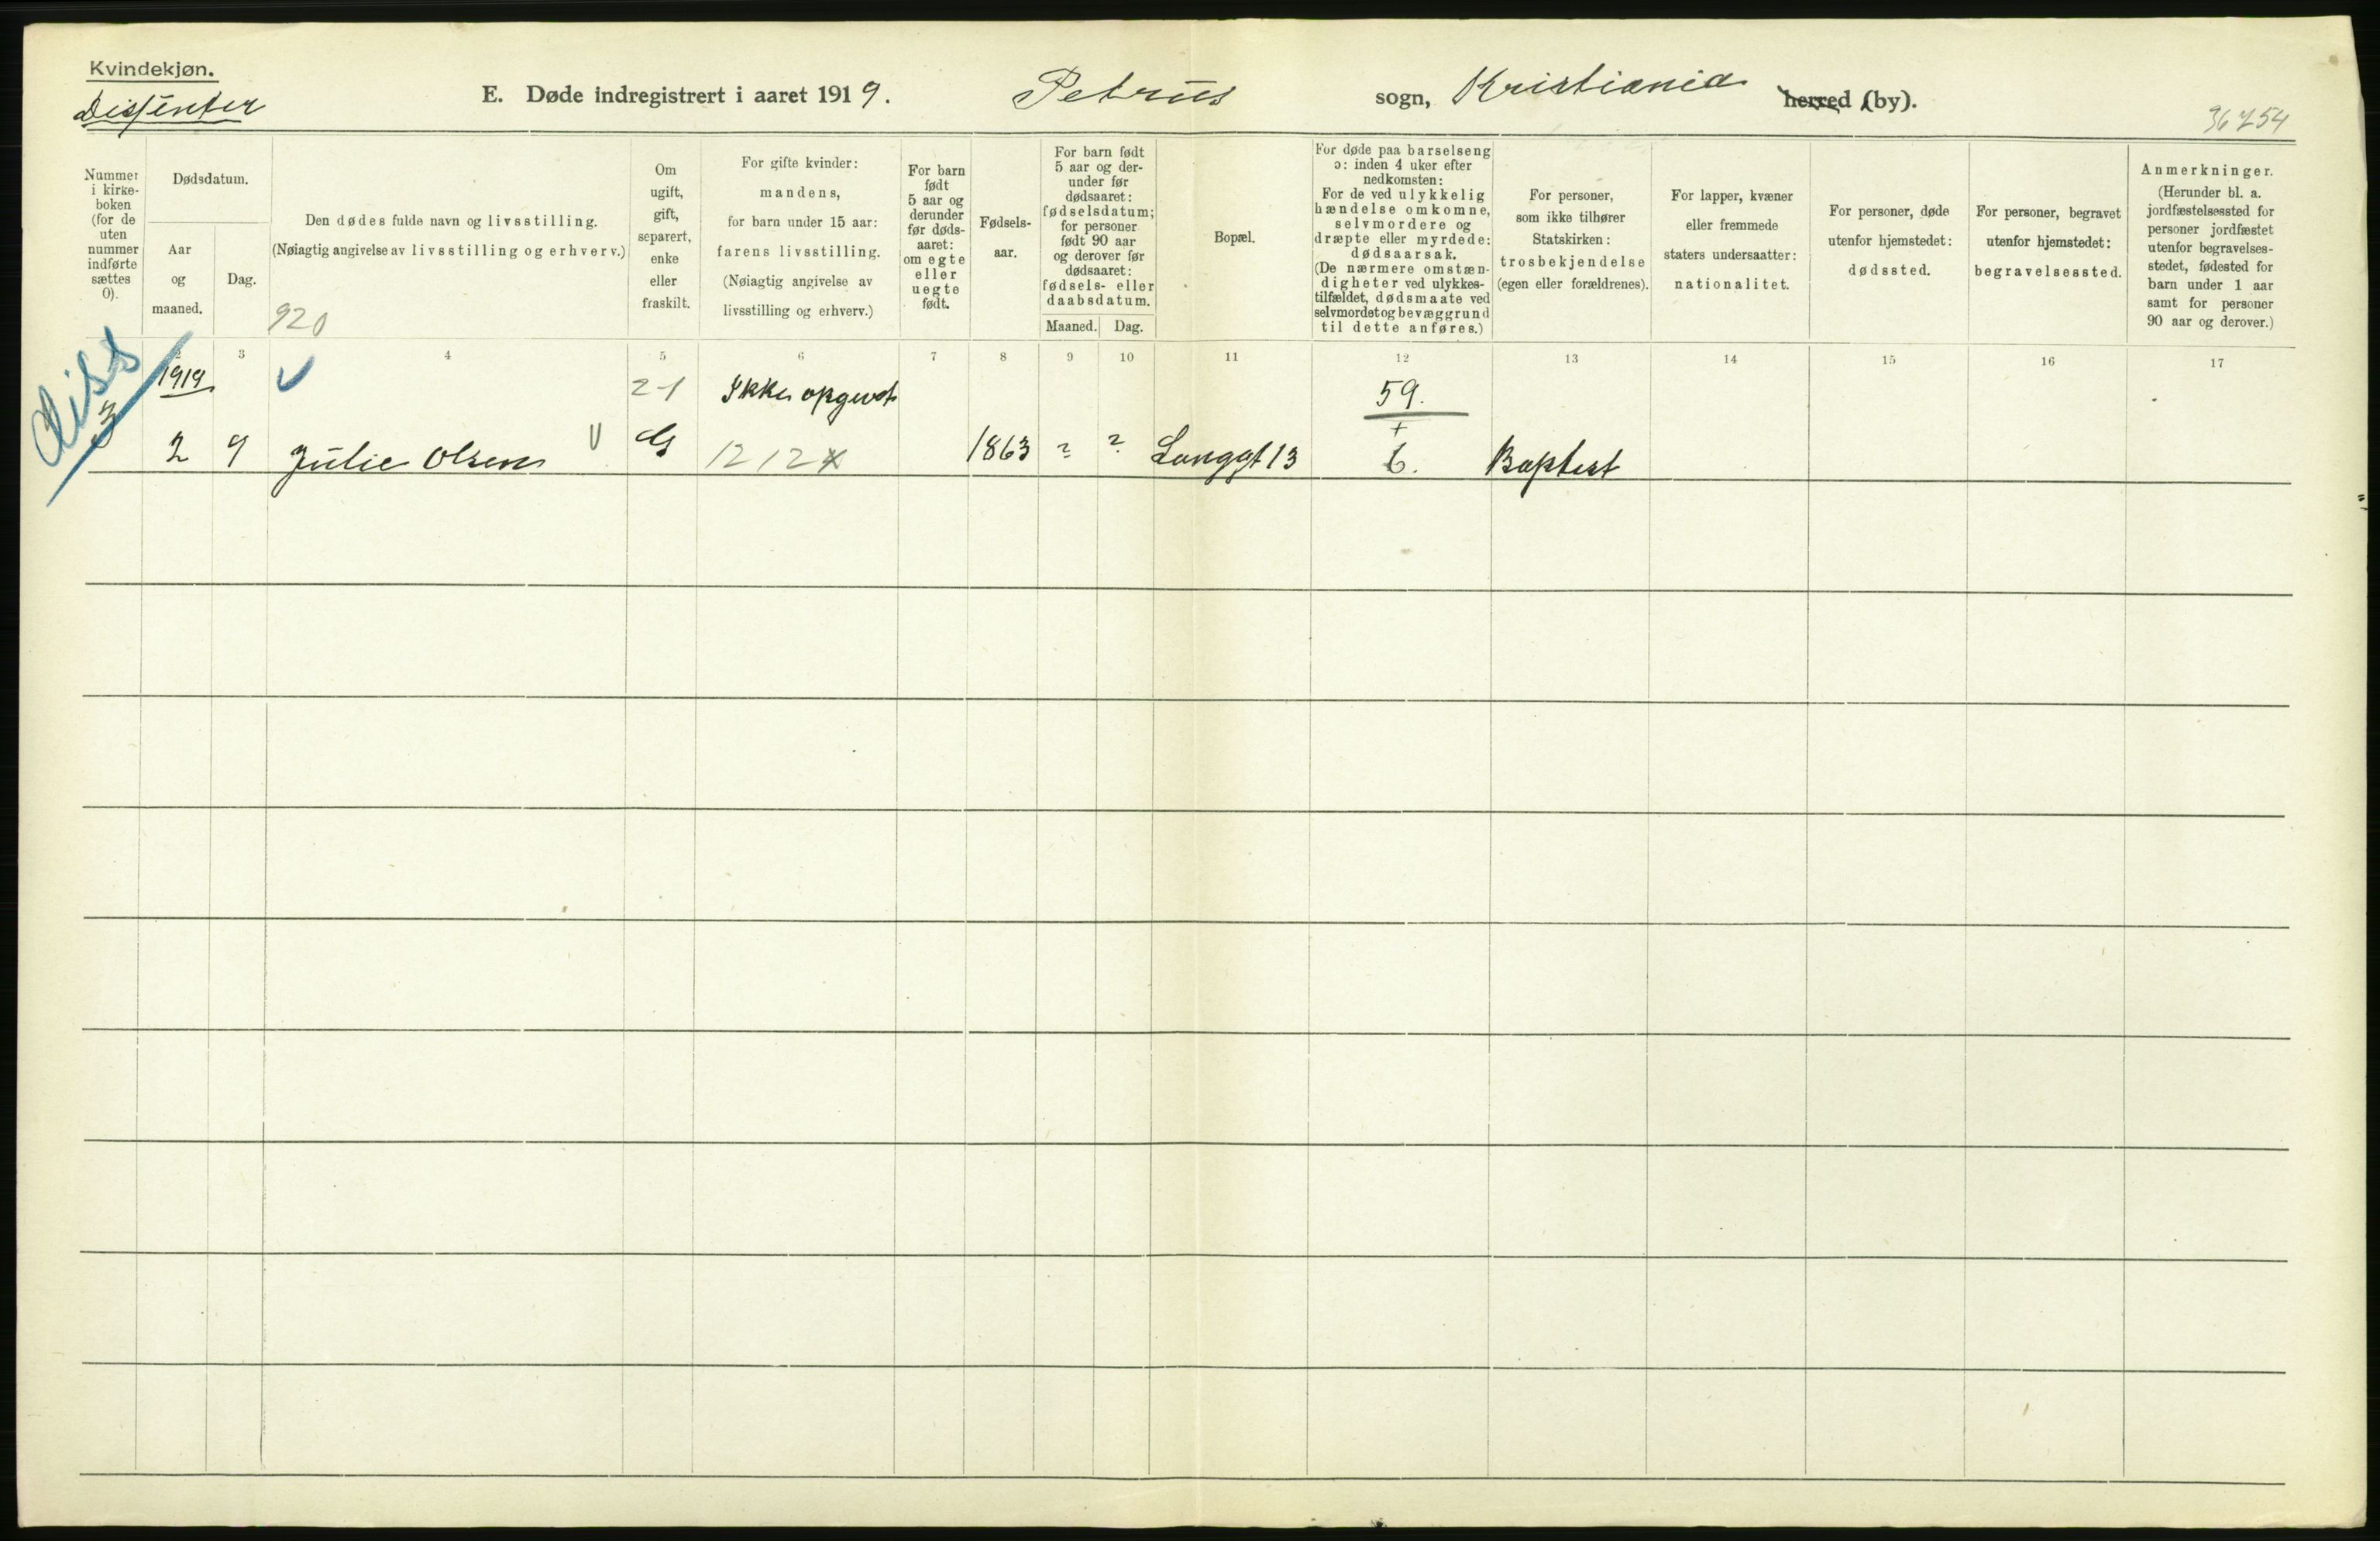 Kvindekjøn.
Dissenter
E. Døde indregistrert i aaret 1919. Petrus sogn, Kristiania herred (by).
36754
Nummer
i kirke-
boken
(for de
uten
nummer
indførte
sættes
0).
Dødsdatum.
Aar
og
maaned.
Dag.
Den dødes fulde navn og livsstilling.
(Nøiagtig angivelse av livsstilling og erhverv.)
920
Om
ugift,
gift,
separert,
enke
eller
fraskilt.
For gifte kvinder:
mandens,
for barn under 15 aar:
farens livsstilling.
(Nøiagtig angivelse av
livsstilling og erhverv.)
For barn
født
5 aar og
derunder
før døds-
aaret:
om egte
eller
uegte
født.
Fødsels-
aar.
For barn født
5 aar og der-
under før
dødsaaret:
fødselsdatum;
for personer
født 90 aar
og derover før
dødsaaret:
fødsels- eller
daabsdatum.
Maaned. Dag.
Bopæl.
For døde paa barselseng
ɔ: inden 4 uker efter
nedkomsten:
For de ved ulykkelig
hændelse omkomne,
selvmordere og
dræpte eller myrdede:
dødsaarsak.
(De nærmere omstæn-
digheter ved ulykkes-
tilfældet, dødsmaate ved
selvmordet og bevæggrund
til dette anføres.)
For personer,
som ikke tilhører
Statskirken:
trosbekjendelse
(egen eller forældrenes).
For lapper, kvæner
eller fremmede
staters undersaatter:
nationalitet.
For personer, døde
utenfor hjemstedet:
dødssted.
For personer, begravet
utenfor hjemstedet:
begravelsessted.
Anmerkninger.
(Herunder bl. a.
jordfæstelsessted for
personer jordfæstet
utenfor begravelses-
stedet, fødested for
barn under 1 aar
samt for personer
90 aar og derover.)
2 3 4 5 6 7 8 9 10 11 12 13 14 15 16 17
diss
1919 21 Ikke opgivet 59.
3 2 9 Julie Olsen G 1212x 1863 ? ? Langgt 13 6. Baptist